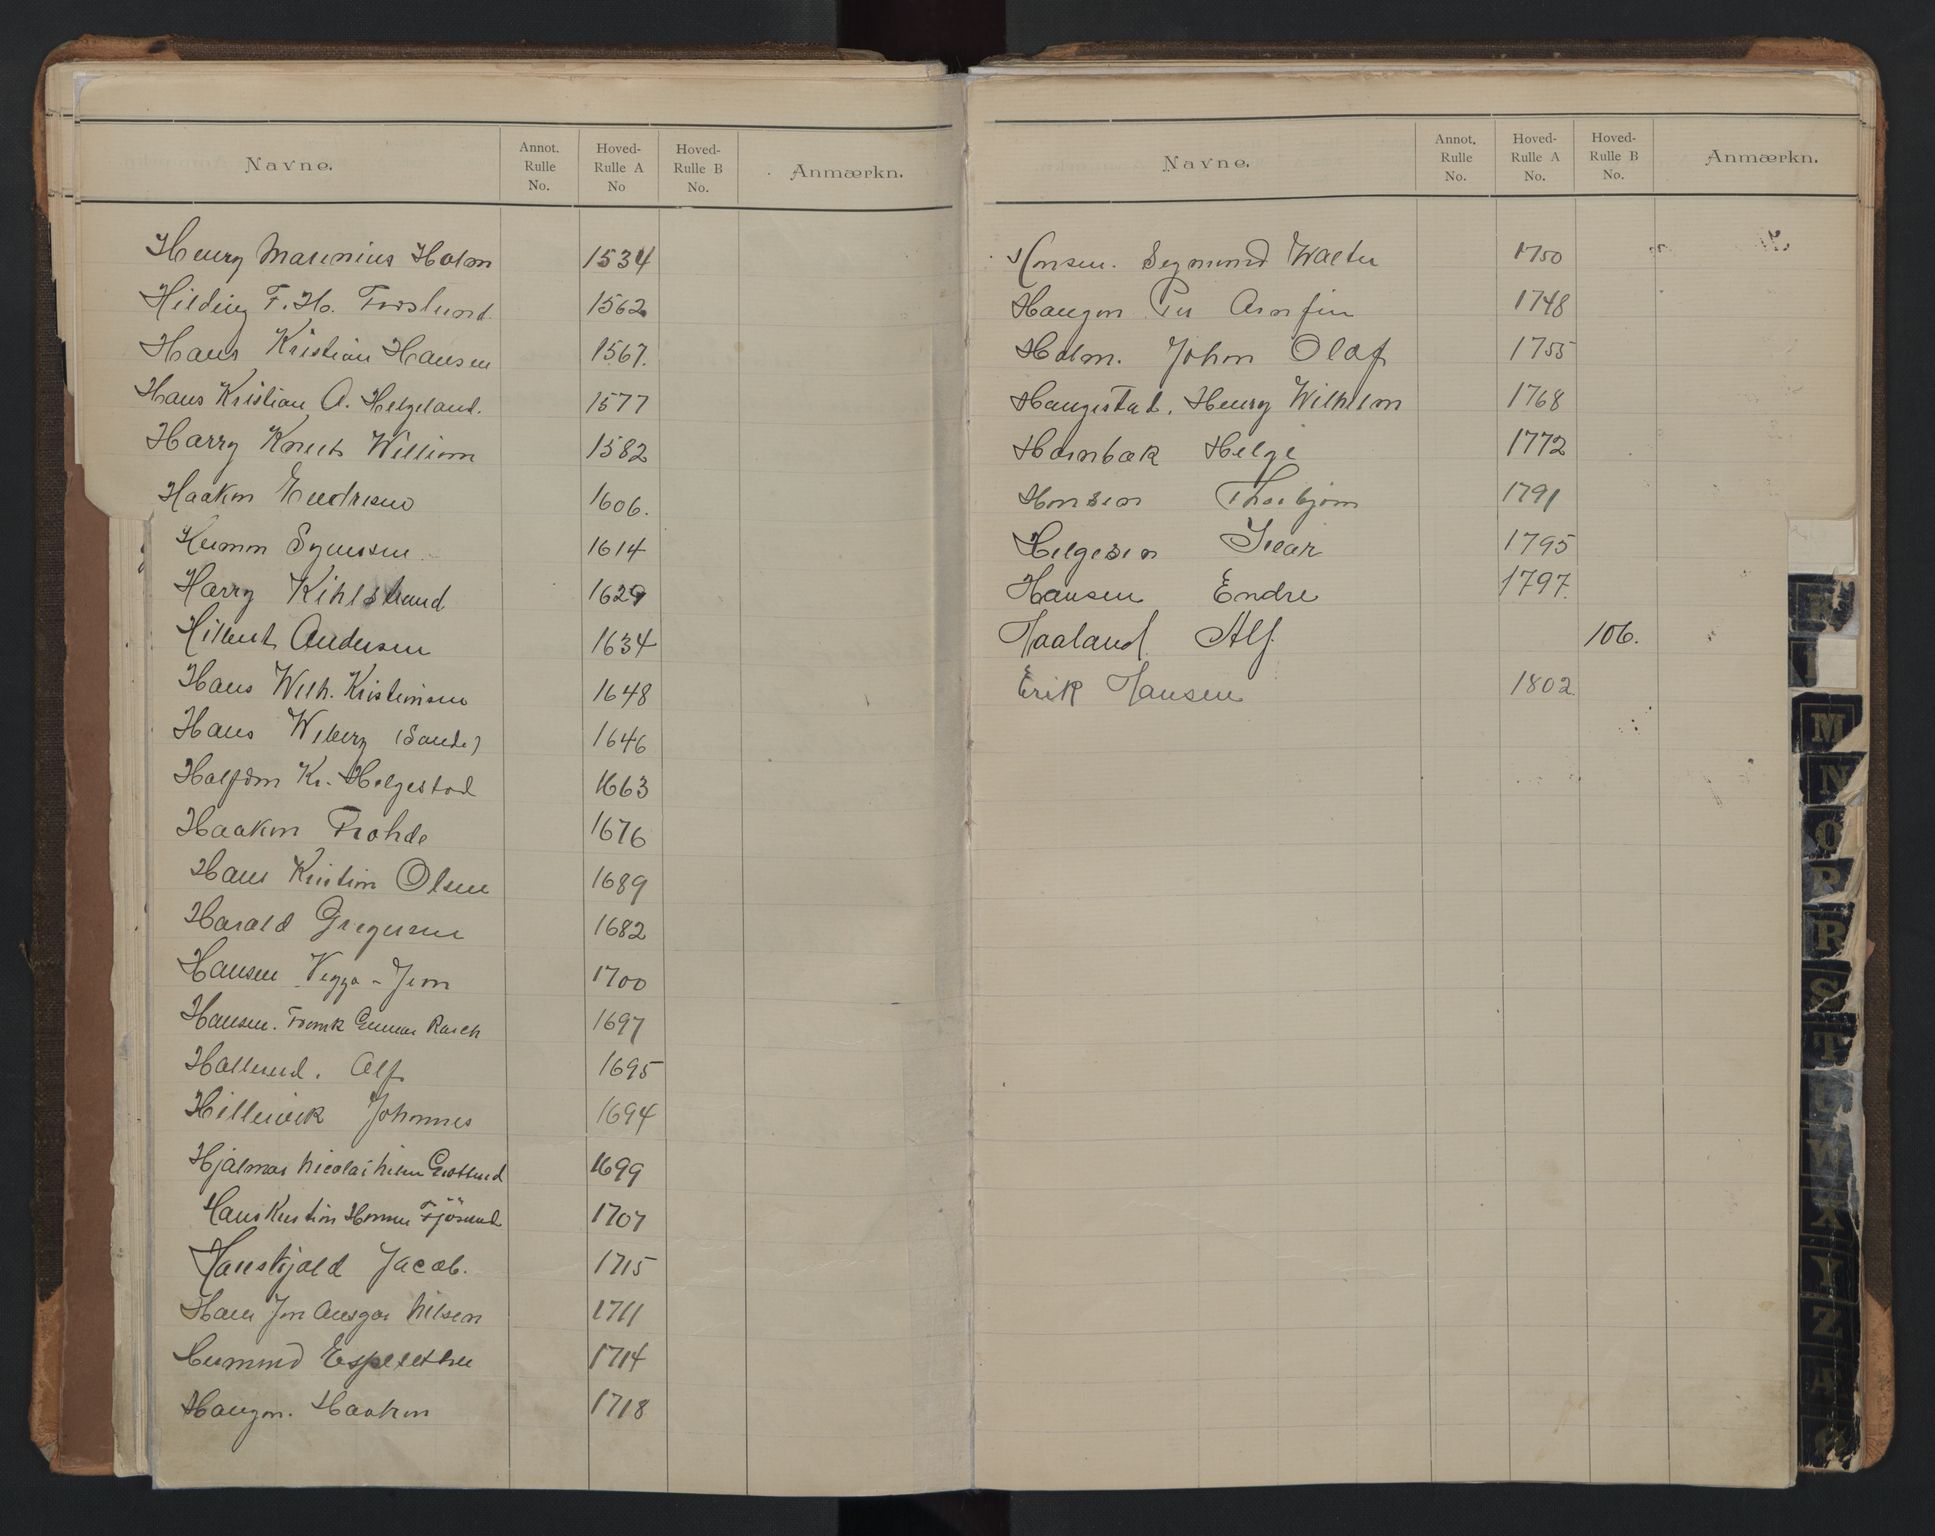 Navne.
Annot. Rulle No.
Hoved-Rulle A No
Hoved-Rulle B No.
Anmærkn.
Henry Marenius Holm 1534
Hilding F. H. Forslund. 1562
Hans Kristian Hansen 1567.
Hans Kristian A. Helgeland. 1577
Harry Knut William 1582
Haakon Endresen 1606.
1614
Harry Kihlstrand 1629
Hilbert Andersen 1634
Hans Wilh. Kristensen 1648
Hans Wiberg (Sande) 1646
Halfdan Kr. Helgestad 1663
Haakon Frohde 1676
Hans Kristian Olsen 1689
Harald Gregersen 1682
Hansen Viggo - Jon 1700
Hansen. Frank Gunnar Rasch 1697
Hallund. Alf 1695
Hillervik Johannes 1694
Hjalmar Nicolai Nilsen 1699
Hans Kristian 1707
Hanskjold Jacob. 1715
Hans Jon Ansgar Nilsen 1711
1714
Haugen. Haakon 1718
Navne.
Annot. Rulle No.
Hoved-Rulle A No.
Hoved-Rulle B No.
Anmærkn.
Hansen. Sigmund Walter 1750
Haugen Per Arnfin 1748
Holm. Johan Olaf 1755
Haugestad. Henry Wilhelm 1768
Hornbæk Helge 1772
Hansen Thorbjørn 1791
Helgesen Ivar 1795
Hansen Endre 1797.
Haaland. Alf. 106.
Erik Hansen 1802.
K
L
M
N
O
P
R
S
T
U
W
X
Y
Z
Æ
Ø